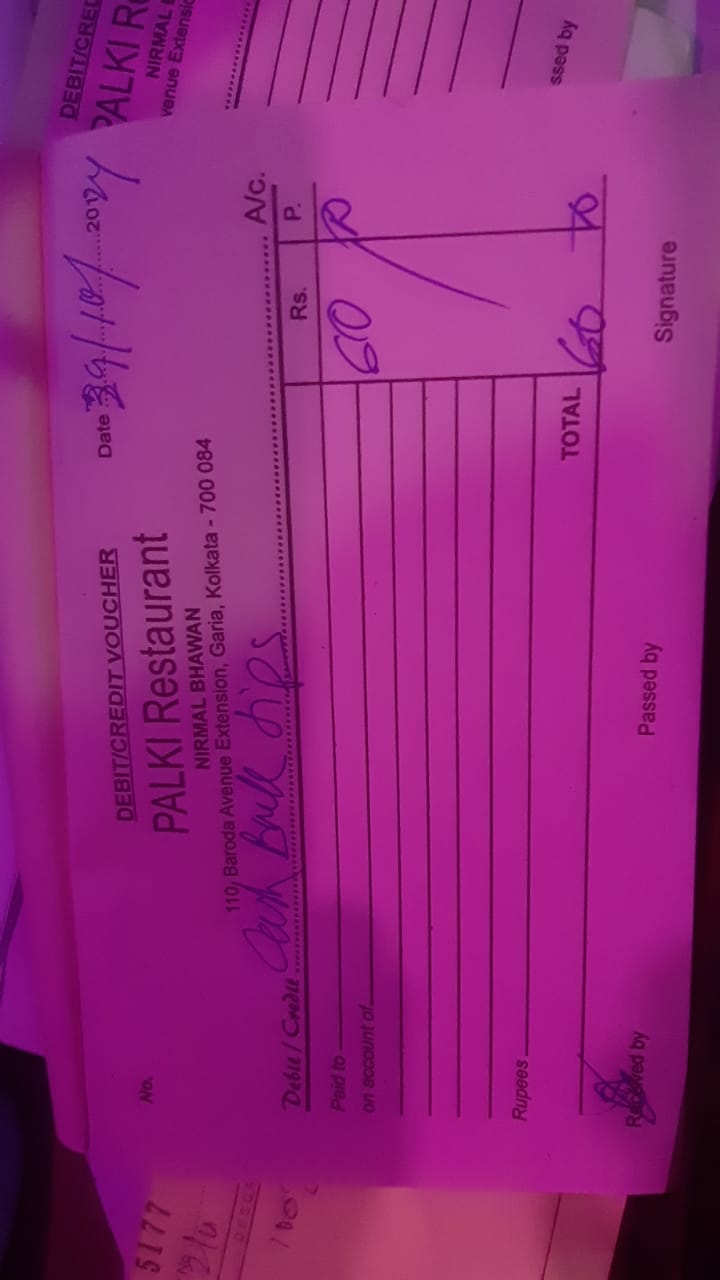 DEBIT/CREDIT VOUCHER
PALKI Restaurant
NIRMAL BHAWAN
110, Baroda Avenue Extension, Garia, Kolkata - 700 084
No.
Date 29/10/2024
Debit / Credit Cash Back tips A/c.
Rs. P.
Paid to 60
on account of
Rupees
TOTAL 60
Received by
Passed by
Signature
DEBIT/CRED
PALKI R
NIRMAL
venue Extensio
ssed by
5177
DESC